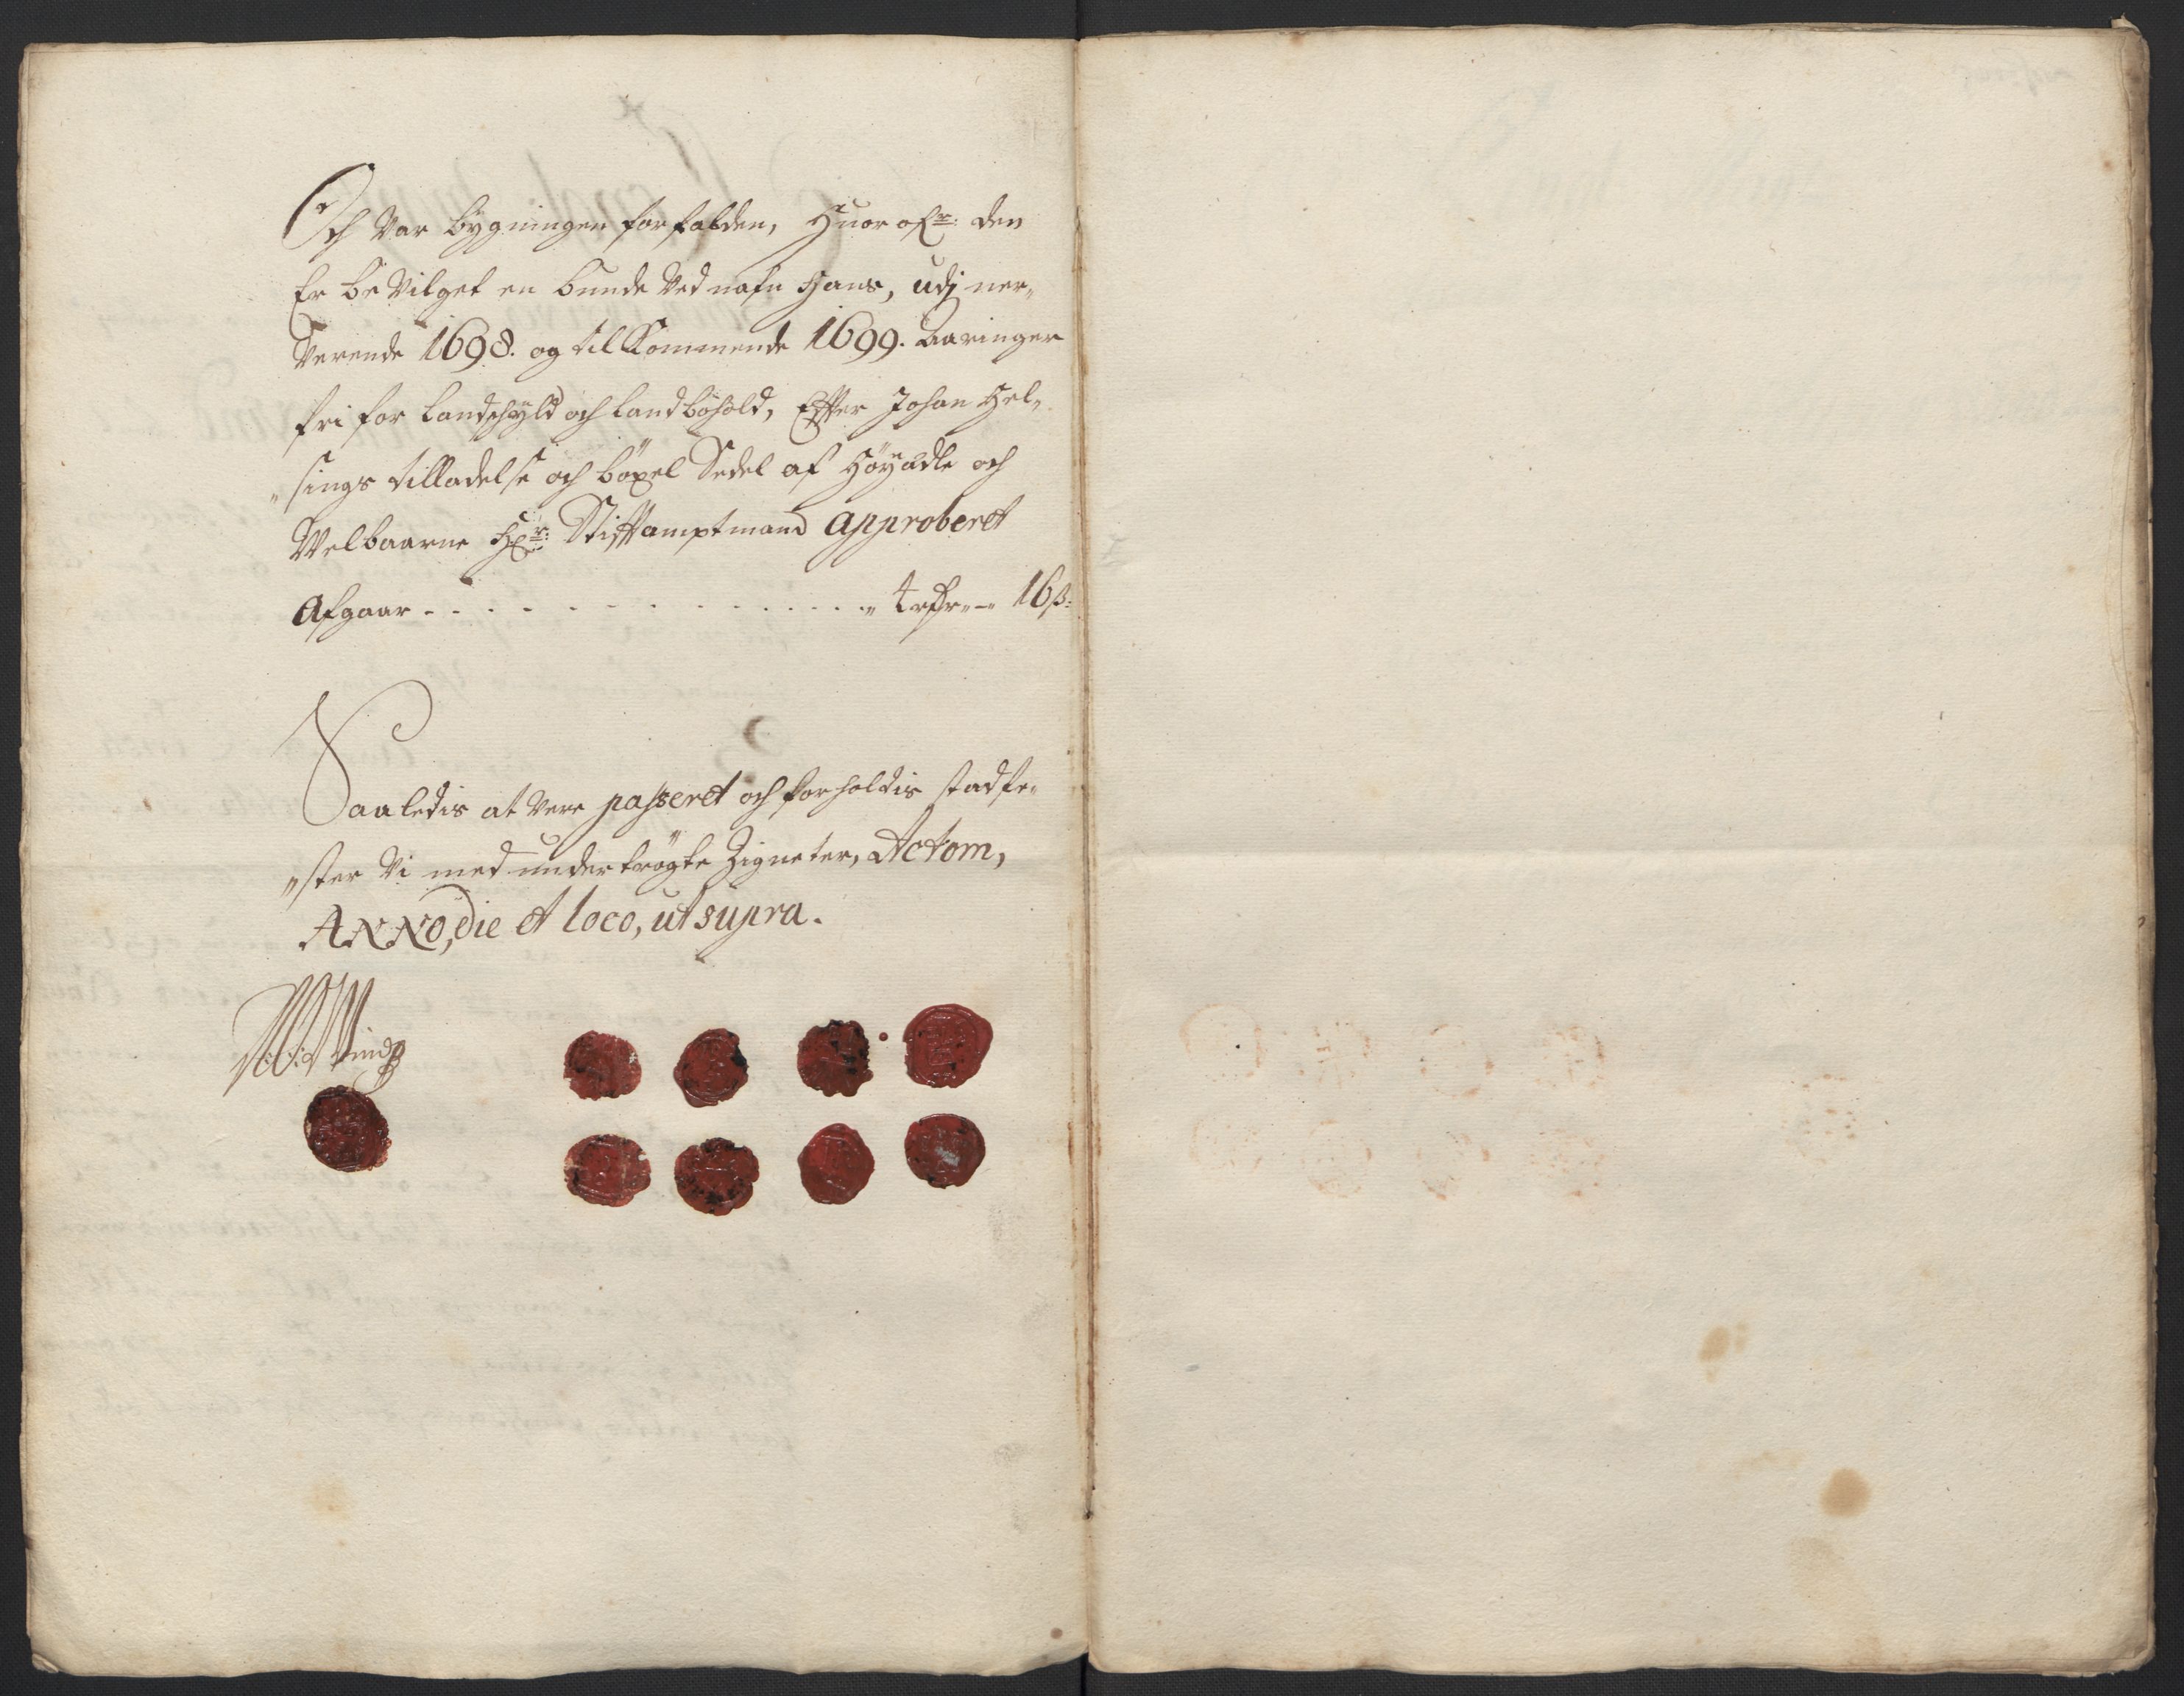 Och var bygningen forfalden, Huor ofr: den
Er be Vilget en bunde ved nafn Hans, udj ner„
Verende 1698. og til Kommende 1699. Aaringer
fri for Landschyld och Landbohold, Effter Johan Hel„
„sings tilladelse och böxel Sedel af Höyædle och
Welbaarne Hr: Stifftamptmand Approberet
Afgaar . . . . . . . . . . . . . . . 16 ß:
Saaledis at Vere passeret och forholdis stadfe„
„ster Vi med undertrögte Zigneter, Actom,
ANNO, die et loco, ut supra.